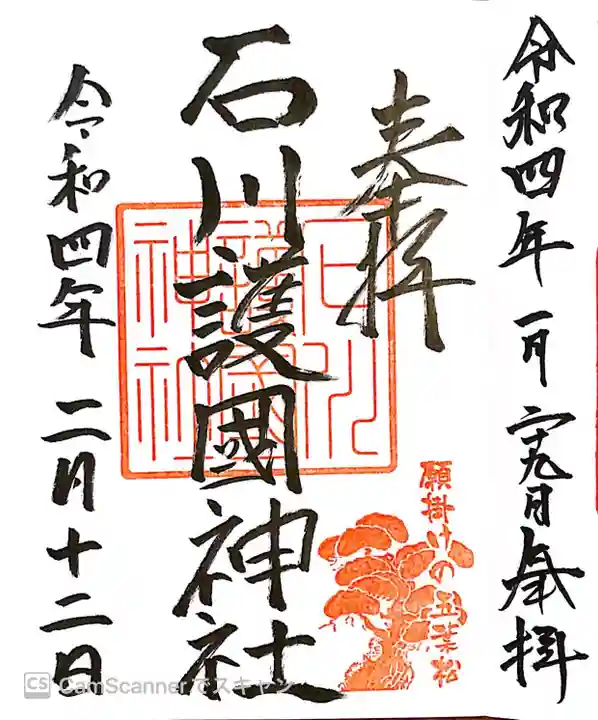 令和四年 一月 二十九日 奉拝
奉拝
石川護國神社
令和四年 二月十二日
石川
護國
神社
願掛けの五葉松
CS CamScannerでスキャン